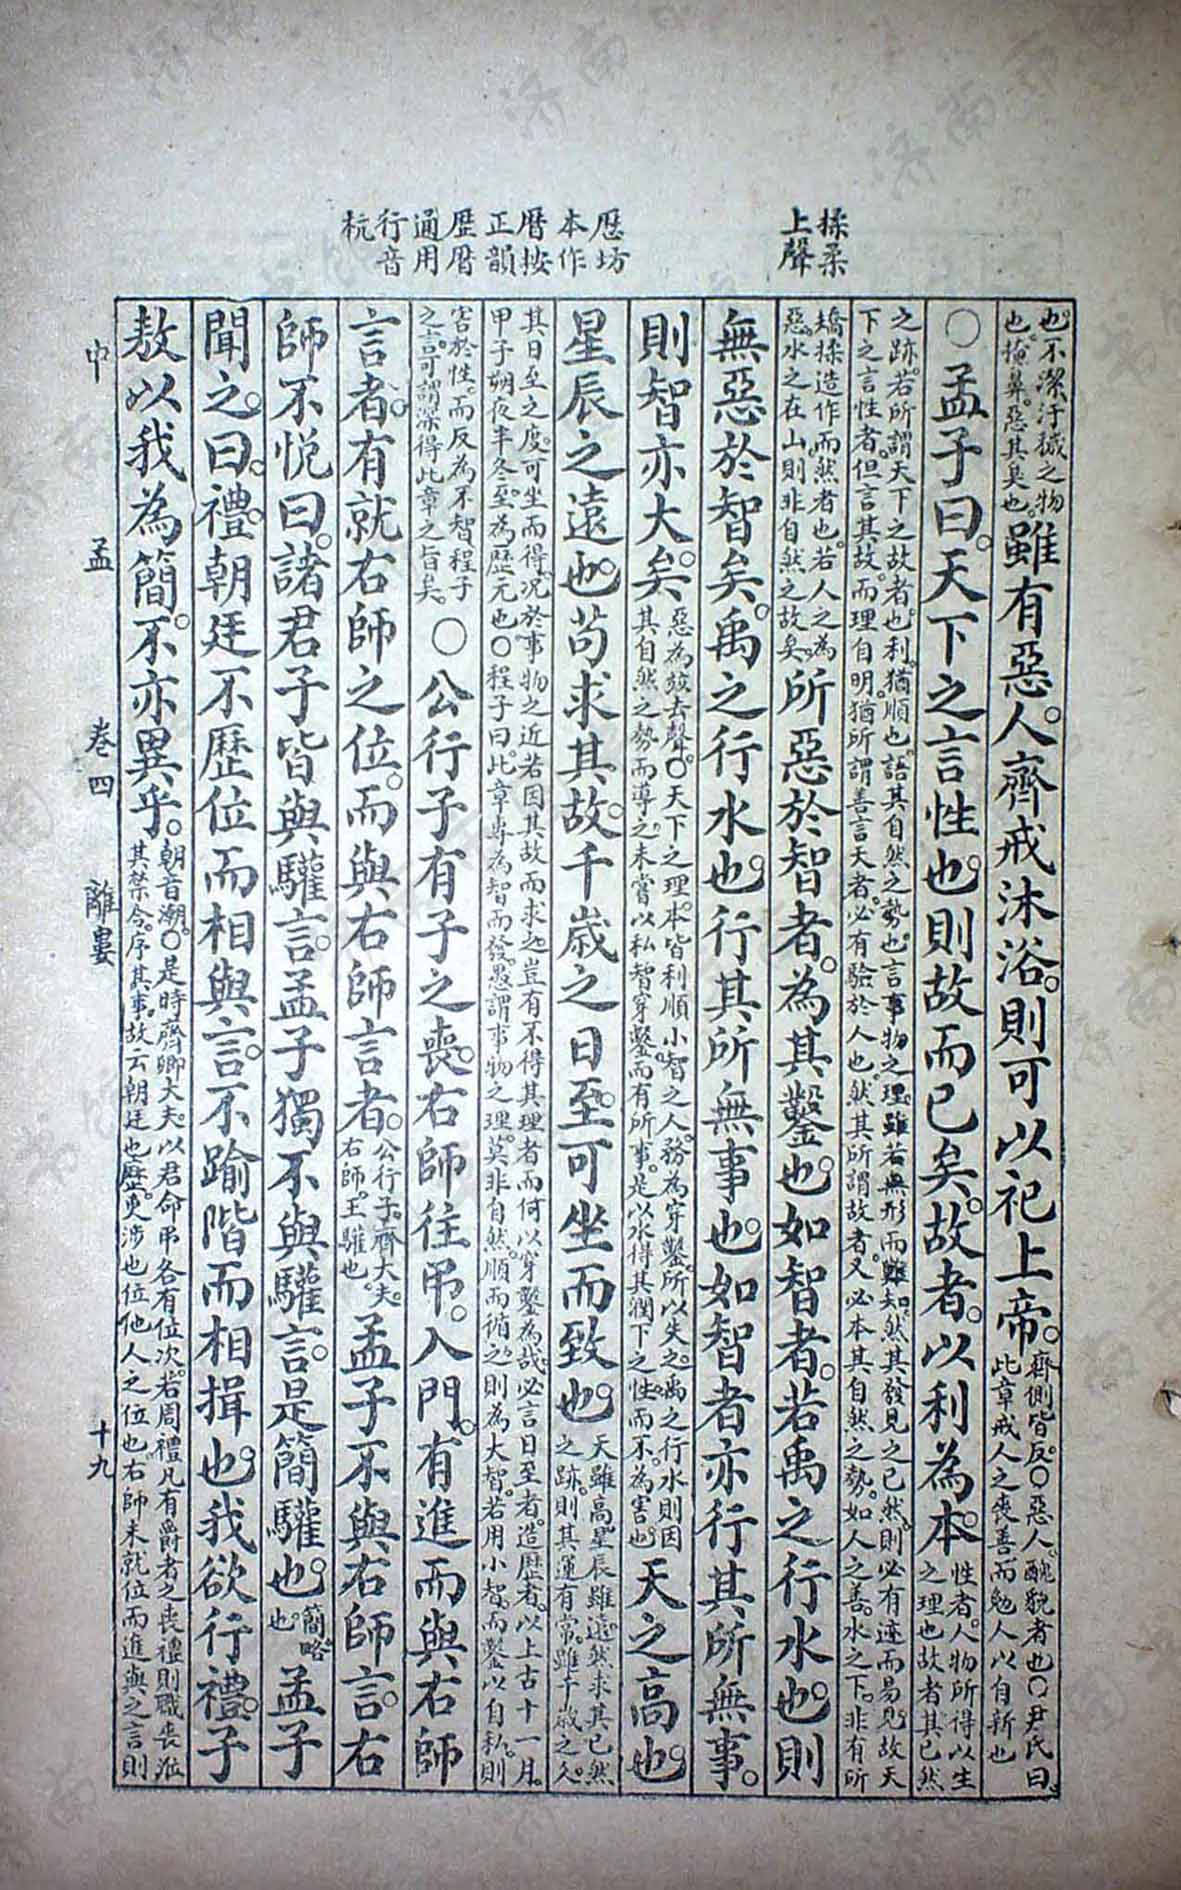 揉柔
上聲
歷坊
本作
曆按
正韻
歷曆
通用
行音
杭
也不潔汙穢之物
也掩鼻惡其臭也雖有惡人齊戒沐浴則可以祀上帝齊側皆反○惡人醜貌者也○尹氏曰
此章戒人之喪善而勉人以自新也
○孟子曰天下之言性也則故而已矣故者以利為本性者人物所得以生
之理也故者其已然
之跡若所謂天下之故者也利猶順也語其自然之勢也言事物之理雖若無形而難知然其發見之已然則必有迹而易見故天
下之言性者但言其故而理自明猶所謂善言天者必有驗於人也然其所謂故者又必本其自然之勢如人之善水之下非有所
矯揉造作而然者也若人之為
惡水之在山則非自然之故矣所惡於智者為其鑿也如智者若禹之行水也則
無惡於智矣禹之行水也行其所無事也如智者亦行其所無事
則智亦大矣惡為並去聲○天下之理本皆利順小智之人務為穿鑿所以失之禹之行水則因
其自然之勢而導之未嘗以私智穿鑿而有所事是以水得其潤下之性而不為害也天之高也
星辰之遠也茍求其故千歲之日至可坐而致也天雖高星辰雖遠然求其已然
之跡則其運有常雖千歲之久
其日至之度可坐而得况於事物之近若因其故而求之豈有不得其理者而何以穿鑿為哉必言日至者造歷者以上古十一月
甲子朔夜半冬至為歷元也○程子曰此章專為智而發愚謂事物之理莫非自然順而循之則為大智若用小智而鑿以自私則
害於性而反為不智程子
之言可謂深得此章之旨矣○公行子有子之喪右師往弔入門有進而與右師
言者有就右師之位而與右師言者公行子齊大夫
右師王驩也孟子不與右師言右
師不悦曰諸君子皆與驩言孟子獨不與驩言是簡驩也簡略
也孟子
聞之曰禮朝廷不歷位而相與言不踰階而相揖也我欲行禮子
敖以我為簡不亦異乎朝音潮○是時齊卿大夫以君命弔各有位次若周禮凡有爵者之喪禮則職喪涖
其禁令序其事故云朝廷也歷更涉也位他人之位也右師未就位而進與之言則
中 孟 卷四 離婁 十九